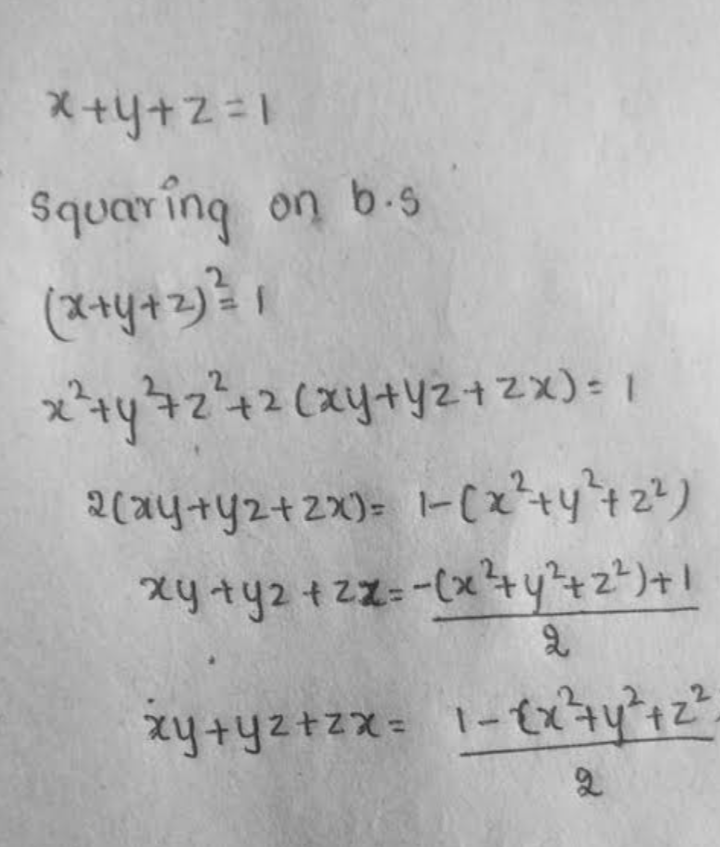 x+y+z=1
squaring on b.s
(x+y+z)²=1
x²+y²+z²+2(xy+yz+zx)=1
2(xy+yz+zx)= 1-(x²+y²+z²)
xy+yz+zx= -(x²+y²+z²)+1
2
xy+yz+zx= 1-(x²+y²+z²
2